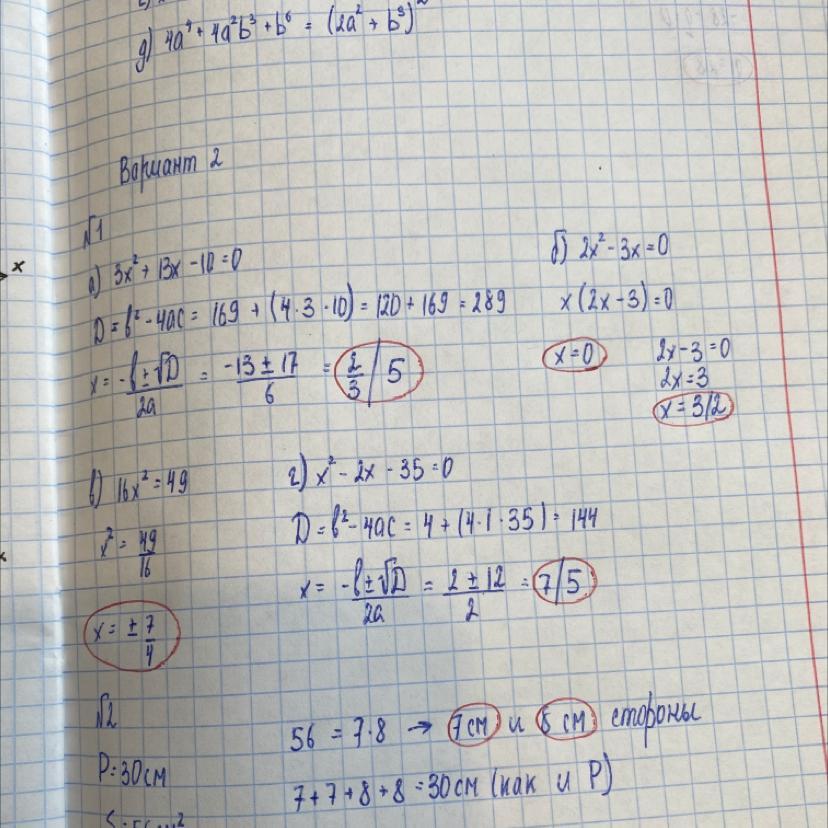 д) 4a⁴ + 4a²b³ + b⁶ = (2a² + b³)²
Вариант 2
№1
а) 3x² + 13x - 10 = 0
D = b² - 4ac = 169 + (4·3·10) = 120 + 169 = 289
x = -b ± √D / 2a = -13 ± 17 / 6 = 2/3 / 5
б) 2x² - 3x = 0
x(2x - 3) = 0
x = 0
2x - 3 = 0
2x = 3
x = 3/2
в) 16x² = 49
x² = 49/16
x = ± 7/4
г) x² - 2x - 35 = 0
D = b² - 4ac = 4 + (4·1·35) = 144
x = -b ± √D / 2a = 2 ± 12 / 2 = 7/5
№2
P = 30 см
56 = 7·8 → 7 см и 8 см стороны
7 + 7 + 8 + 8 = 30 см (как и P)
x